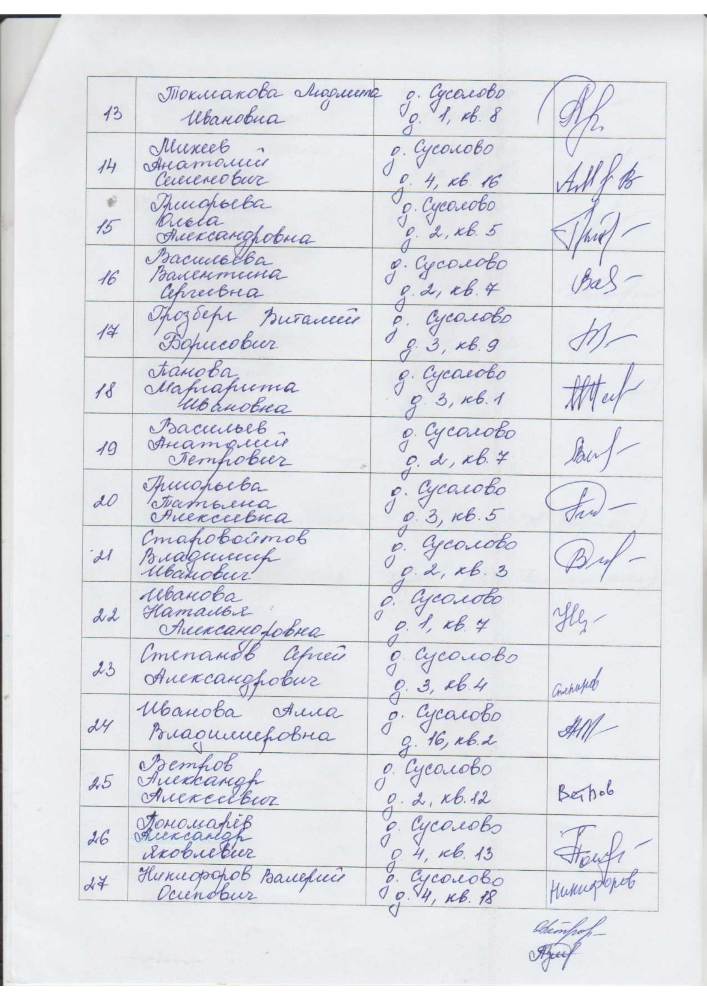 13 Токмакова Людмила д. Сусолово
Ивановна д. 1, кв. 8
14 Михеев д. Сусолово
Анатолий
Семенович д. 4, кв. 16
15 Григорьева д. Сусолово
Ольга
Александровна д. 2, кв. 5
16 Васильева д. Сусолово
Валентина
Сергеевна д. 2, кв. 7
17 Грозберг Виталий д. Сусолово
Борисович д. 3, кв. 9
18 Панова д. Сусолово
Маргарита
Ивановна д. 3, кв. 1
19 Васильев д. Сусолово
Анатолий
Петрович д. 2, кв. 7
20 Григорьева д. Сусолово
Татьяна
Алексеевна д. 3, кв. 5
21 Старовойтов д. Сусолово
Владимир
Иванович д. 2, кв. 3
22 Иванова д. Сусолово
Наталья
Александровна д. 1, кв. 7
23 Степанов Сергей д. Сусолово
Александрович д. 3, кв. 4
24 Иванова Алла д. Сусолово
Владимировна д. 16, кв. 2
25 Ветров д. Сусолово
Александр Ветров
Алексеевич д. 2, кв. 12
26 Пономарёв д. Сусолово
Александр
Яковлевич д. 4, кв. 13
27 Никифоров Валерий д. Сусолово Никифоров
Осипович д. 4, кв. 18